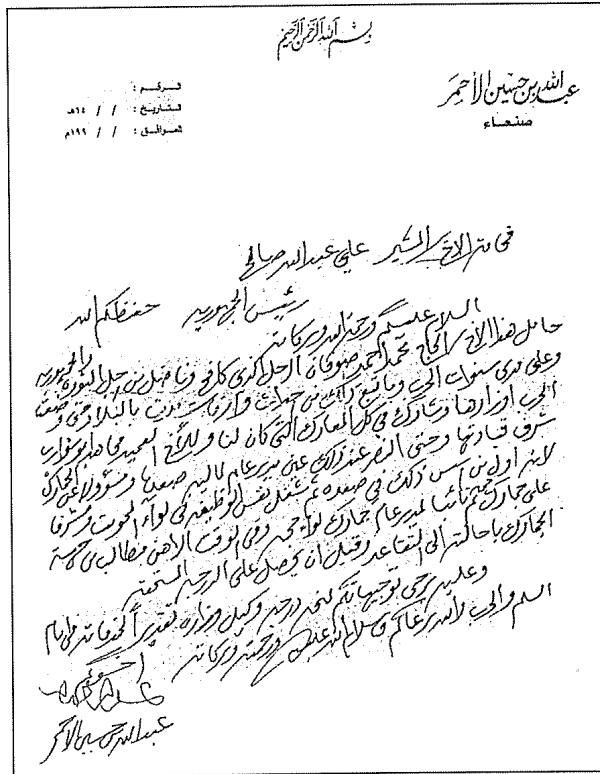 بسم الله الرحمن الرحيم
عبدالله بن حسين الأحمر
صنعاء
الرقم :
التاريخ : / / ١٤هـ
الموافق : / / ١٩٩م
فخامة الاخ المشير علي عبدالله صالح
رئيس الجمهورية حفظكم الله
السلام عليكم ورحمة الله وبركاته
حامل هذا الاخ الحاج محمد احمد هو الرجل الذي كافح وناضل من اجل الثورة والجمهورية
وعلى مدى سنوات الحرب وما تبع ذلك من احداث وازمات مرت بالبلاد حتى وضعت
الحرب اوزارها وشارك في كل المعارك التي كان لنا وللأخ العميد مجاهد ابو شوارب
شرف قيادتها وحتى النصر عند ذلك عين مدير عام مالية صعده ومسؤولا عن الجمارك
لانه اول من اسس ذلك في صعده ثم شغل نفس الوظيفة في لواء المحويت ومشرفا
على جمارك ثم نائبا لمدير عام جمارك لواء حجه وفي الوقت الاهن مطالب من
الجمارك باحالته الى التقاعد وقبل ان يحصل على الدرجة المستحقة
وعليه نرجو توجيهاتكم بمنحه درجة وكيل وزارة تقديرا لخدماته في ايام
السلم والحرب والله يرعاكم والسلام عليكم ورحمة الله وبركاته
اخوكم
عبدالله بن حسين الاحمر